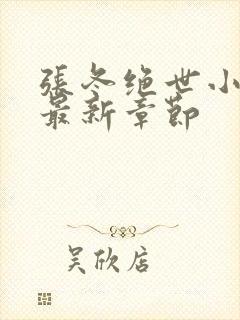 張冬绝世小
最新章節
吴欣店